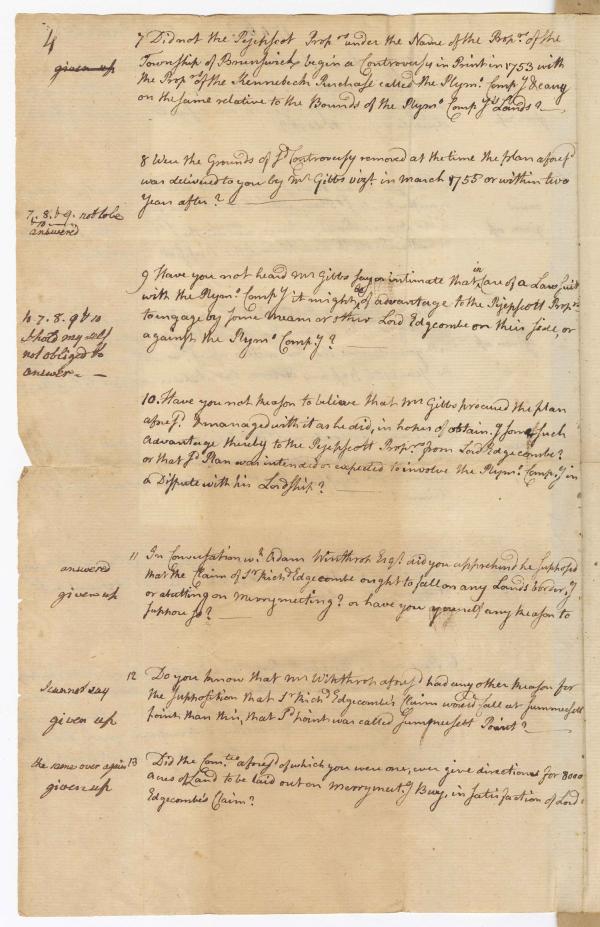 4
given up
7 Did not the Pejepscot Prop.rs under the Name of the Prop.rs of the
Township of Brunswick begin a Controversy in Print in 1753 with
the Prop.rs of the Kennebeck Purchase called the Plym.o Comp.y & carry
on the same relative to the Bounds of the Plym.o Comp.y's Lands?
8 Were the Grounds of s.d Controversy removed at the time the Plan afores.d
was delivered to you by Mr Gibbs viz.t in March 1755 or within two
Years after?
7. 8. & 9. not to be
answered
9 Have you not heard Mr Gibbs say or intimate that in Case of a Law suit
with the Plym.o Comp.y it might be of advantage to the Pejepscott Prop.rs
to engage by some means or other Lord Edgcombe on their side, or
against the Plym.o Comp.y?
to 7. 8. 9 & 10
I hold my self
not obliged to
answer
10. Have you not Reason to believe that Mr Gibbs procured the plan
afores.d & managed with it as he did, in hopes of obtain.g some such
Advantage thereby to the Pejepscott Prop.rs from Lord Edgecombe?
or that s.d Plan was intended or expected to involve the Plym.o Comp.y in
a Dispute with his Lordship?
answered
given up
11 In Conversation w.h Adam Winthrop Esq.r did you apprehend he supposed
that the Claim of S.r Rich.d Edgecombe ought to fall on any Lands border.g
or abutting on Merrymeeting? or have you yourself any Reason to
suppose so?
I cannot say
given up
12 Do you know that Mr Winthrop afores.d had any other Reason for
the supposition that S.r Rich.d Edgcombe's Claim would fall at Summersett
point than this, that s.d point was called Summersett Point?
the same over again
given up
13 Did the Com.tee afores.d of which you were one, ever give directions for 8000
Acres of Land to be laid out on Merrymeet.g Bay, in satisfaction of Lord
Edgcombe's Claim?